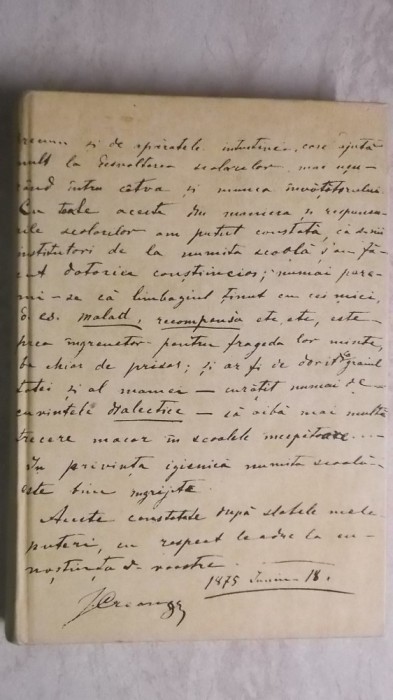 precum și de aparatele intuitive, care ajută
mult la desvoltarea scolarilor, mai ușu-
rând întru câtva și munca învățătorului.
Cu toate aceste din manera și responsu-
rile scolarilor am putut constata, că d-nii
institutori de la numita scoală ș'au fă-
cut datoria conștiincios; numai pare-
mi-se că limbagiul ținut cu cei mici,
d. es. malad, recompensa etc. etc., este
prea îngreuetor pentru frageda lor minte,
ba chiar de prisos; și ar fi de dorit ca graiul
tatei și al mamei — curățit numai de
cuvintele dialectice — să aibă mai multă
trecere macar în scoalele începătoare...—
In privința igienică numita scoală
este bine îngrijită.
Aceste constatate după slabele mele
puteri, cu respect le adre la cu-
noștiința d-voastre.
1875 Iunie 18.
I Creangă